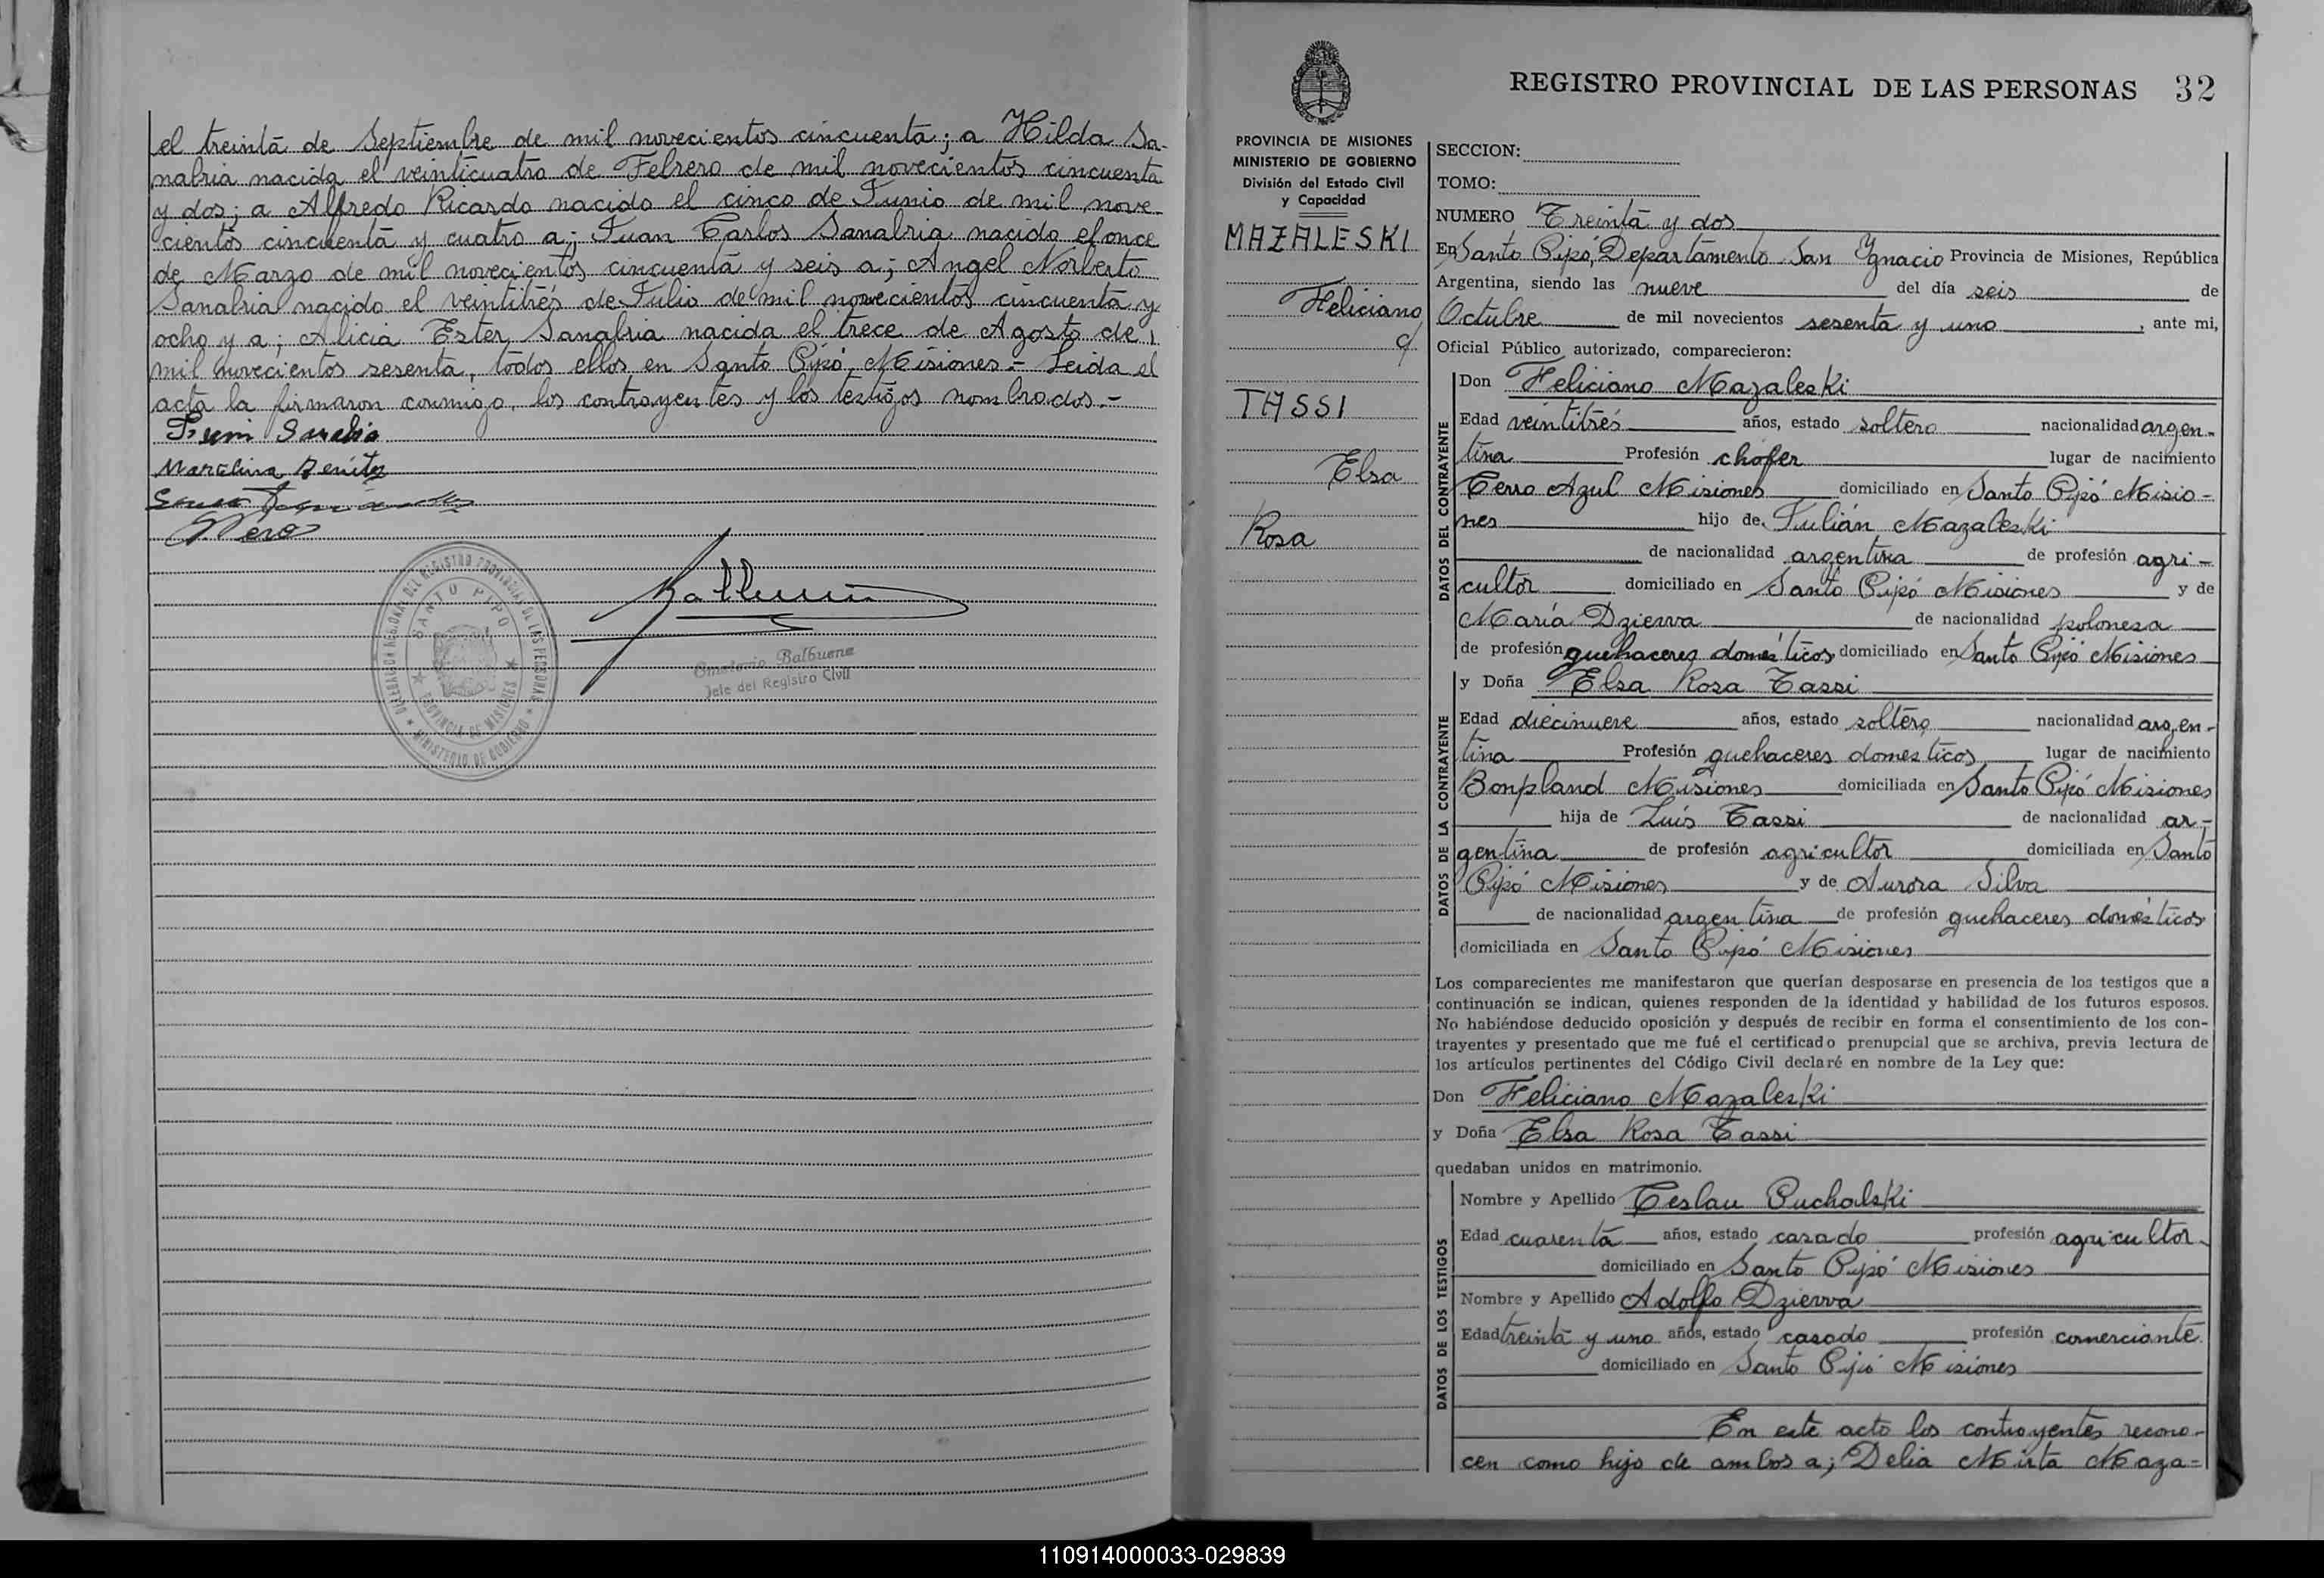 el treinta de Septiembre de mil novecientos cincuenta; a Hilda Sa-
nabria nacida el veinticuatro de Febrero de mil novecientos cincuenta
y dos; a Alfredo Ricardo nacido el cinco de Junio de mil nove-
cientos cincuenta y cuatro a; Juan Carlos Sanabria nacido el once
de Marzo de mil novecientos cincuenta y seis a; Angel Norberto
Sanabria nacido el veintitrés de Julio de mil novecientos cincuenta y
ocho y a; Alicia Ester Sanabria nacida el trece de Agosto de
mil novecientos sesenta, todos ellos en Santo Pipó, Misiones.- Leida el
acta la firmaron conmigo, los contrayentes y los testigos nombrados.-
Marcelina Benitez
DELEGACION REGIONAL DEL REGISTRO PROVINCIAL DE LAS PERSONAS
SANTO PIPO
PROVINCIA DE MISIONES
MINISTERIO DE GOBIERNO
Balbuena
Jefe del Registro Civil
REGISTRO PROVINCIAL DE LAS PERSONAS 32
PROVINCIA DE MISIONES
MINISTERIO DE GOBIERNO
División del Estado Civil
y Capacidad
MAZALESKI
Feliciano
c/
TASSI
Elsa
Rosa
SECCION:
TOMO:
NUMERO Treinta y dos
En Santo Pipó, Departamento San Ygnacio Provincia de Misiones, República
Argentina, siendo las nueve del día seis de
Octubre de mil novecientos sesenta y uno, ante mi,
Oficial Público autorizado, comparecieron:
DATOS DEL CONTRAYENTE
Don Feliciano Mazaleski
Edad veintitrés años, estado soltero nacionalidad argen-
tina Profesión chófer lugar de nacimiento
Cerro Azul Misiones domiciliado en Santo Pipó Misio-
nes hijo de Julián Mazaleski
de nacionalidad argentina de profesión agri-
cultor domiciliado en Santo Pipó Misiones y de
María Dzierva de nacionalidad polonesa
de profesión quehaceres domésticos domiciliado en Santo Pipó Misiones
DATOS DE LA CONTRAYENTE
y Doña Elsa Rosa Tassi
Edad diecinueve años, estado soltera nacionalidad argen-
tina Profesión quehaceres domesticos lugar de nacimiento
Bonpland Misiones domiciliada en Santo Pipó Misiones
hija de Luis Tassi de nacionalidad ar-
gentina de profesión agricultor domiciliada en Santo
Pipó Misiones y de Aurora Silva
de nacionalidad argentina de profesión quehaceres domésticos
domiciliada en Santo Pipó Misiones
Los comparecientes me manifestaron que querían desposarse en presencia de los testigos que a
continuación se indican, quienes responden de la identidad y habilidad de los futuros esposos.
No habiéndose deducido oposición y después de recibir en forma el consentimiento de los con-
trayentes y presentado que me fué el certificado prenupcial que se archiva, previa lectura de
los artículos pertinentes del Código Civil declaré en nombre de la Ley que:
Don Feliciano Mazaleski
y Doña Elsa Rosa Tassi
quedaban unidos en matrimonio.
DATOS DE LOS TESTIGOS
Nombre y Apellido Ceslau Puchalski
Edad cuarenta años, estado casado profesión agricultor
domiciliado en Santo Pipó Misiones
Nombre y Apellido Adolfo Dzierva
Edad treinta y uno años, estado casado profesión comerciante
domiciliado en Santo Pipó Misiones
En este acto los contrayentes recono-
cen como hijo de ambos a; Delia Mirta Maza=
110914000033-029839